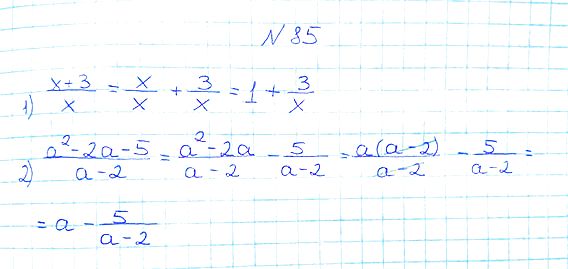 N 85
1) \frac{x+3}{x} = \frac{x}{x} + \frac{3}{x} = 1 + \frac{3}{x}
2) \frac{a^2-2a-5}{a-2} = \frac{a^2-2a}{a-2} - \frac{5}{a-2} = \frac{a(a-2)}{a-2} - \frac{5}{a-2} =
= a - \frac{5}{a-2}